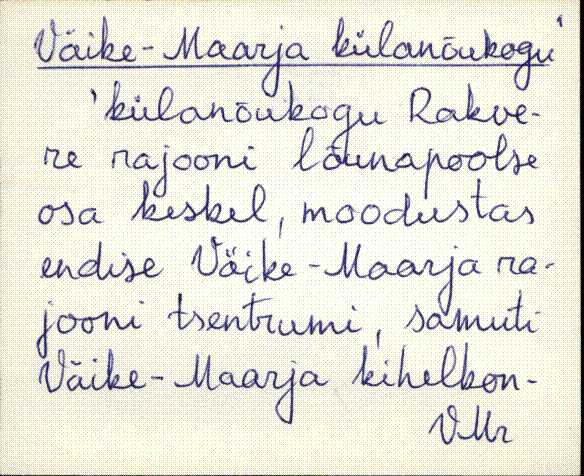 Väike-Maarja külanõukogu'
'külanõukogu Rakve-
re rajooni lõunapoolse
osa keskel, moodustas
endise Väike-Maarja ra-
jooni tsentrumi, samuti
Väike-Maarja kihelkon-
VMr